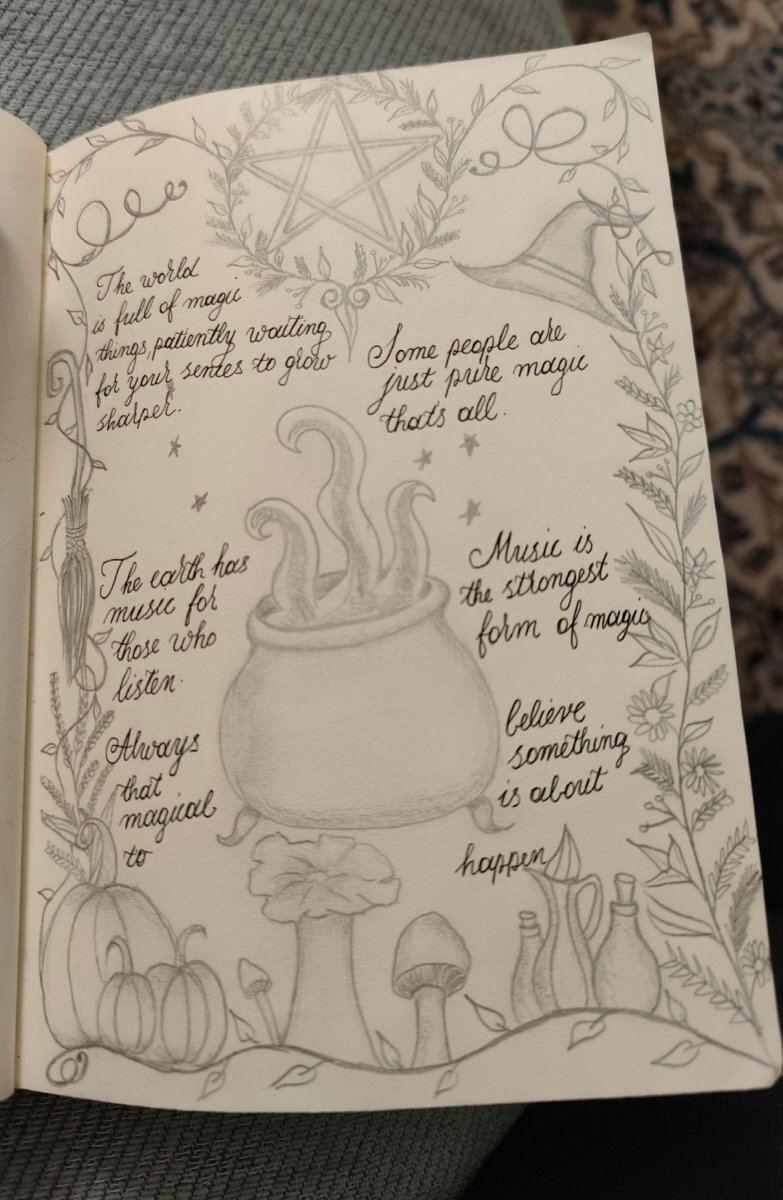 The world
is full of magic
things, patiently waiting
for your senses to grow
sharper.
Some people are
just pure magic
thats all.
The earth has
music for
those who
listen.
Music is
the strongest
form of magic
Always believe
that something
magical is about
to happen